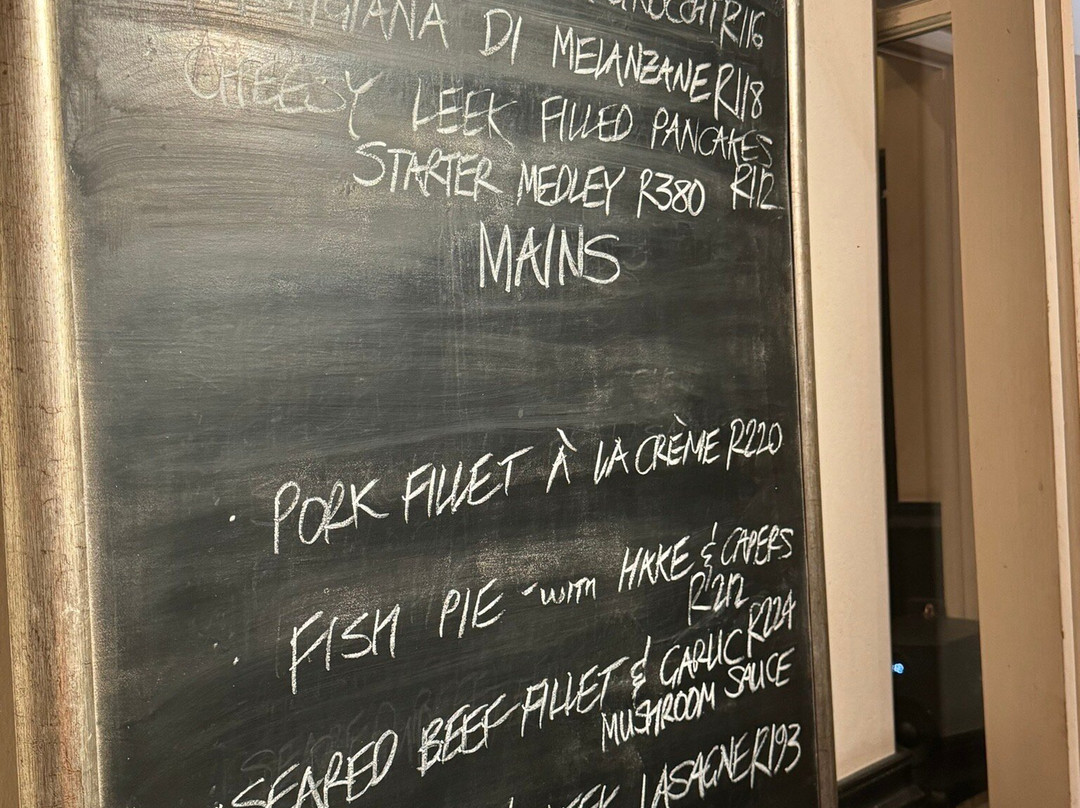 GNOCCHI R116
DI MELANZANE R118
CHEESY LEEK FILLED PANCAKES
R112
STARTER MEDLEY R380
MAINS
· PORK FILLET À LA CRÈME R220
· FISH PIE - WITH HAKE & CAPERS
R212
· SEARED BEEF FILLET & GARLIC R224
MUSHROOM SAUCE
LASAGNE R193